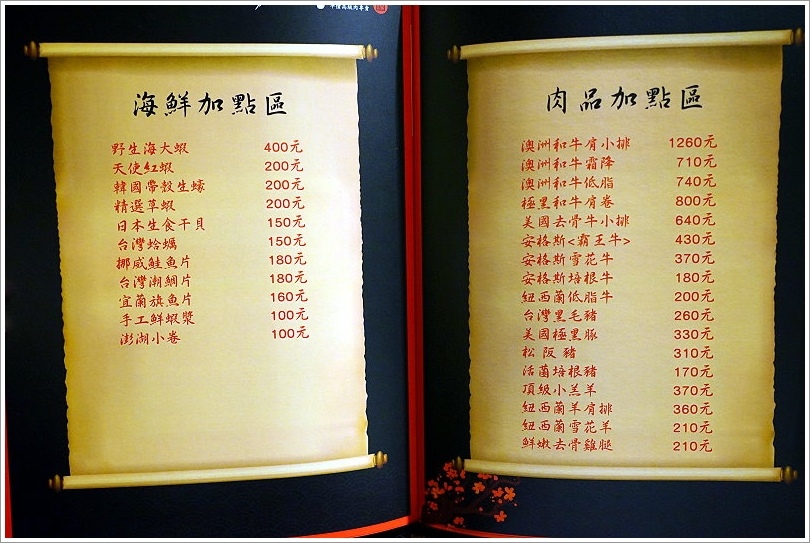 海鮮加點區
野生海大蝦 400元
天使紅蝦 200元
韓國帶殼生蠔 200元
精選草蝦 200元
日本生食干貝 150元
台灣蛤蠣 150元
挪威鮭魚片 180元
台灣潮鯛片 180元
宜蘭旗魚片 160元
手工鮮蝦漿 100元
澎湖小卷 100元
肉品加點區
澳洲和牛肩小排 1260元
澳洲和牛霜降 710元
澳洲和牛低脂 740元
極黑和牛肩卷 800元
美國去骨牛小排 640元
安格斯<霸王牛> 430元
安格斯雪花牛 370元
安格斯培根牛 180元
紐西蘭低脂牛 200元
台灣黑毛豬 260元
美國極黑豚 330元
松阪豬 310元
活菌培根豬 170元
頂級小羔羊 370元
紐西蘭羊肩排 360元
紐西蘭雪花羊 210元
鮮嫩去骨雞腿 210元